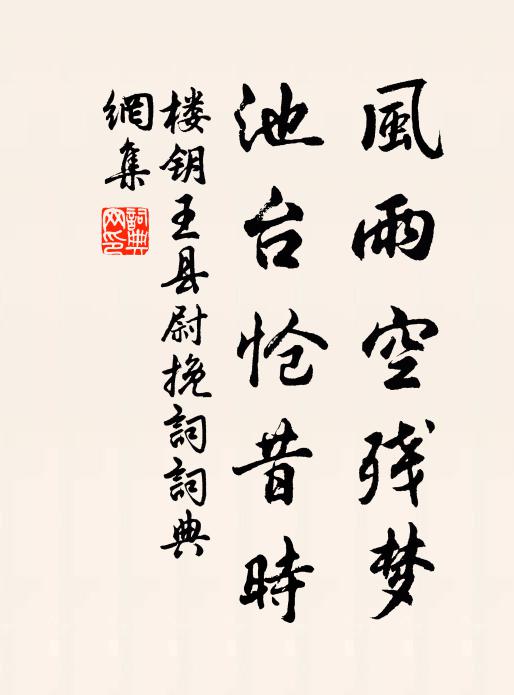 風雨空残梦
池台怆昔時
楼钥王县尉挽詞詞典
網集
詞典
网印